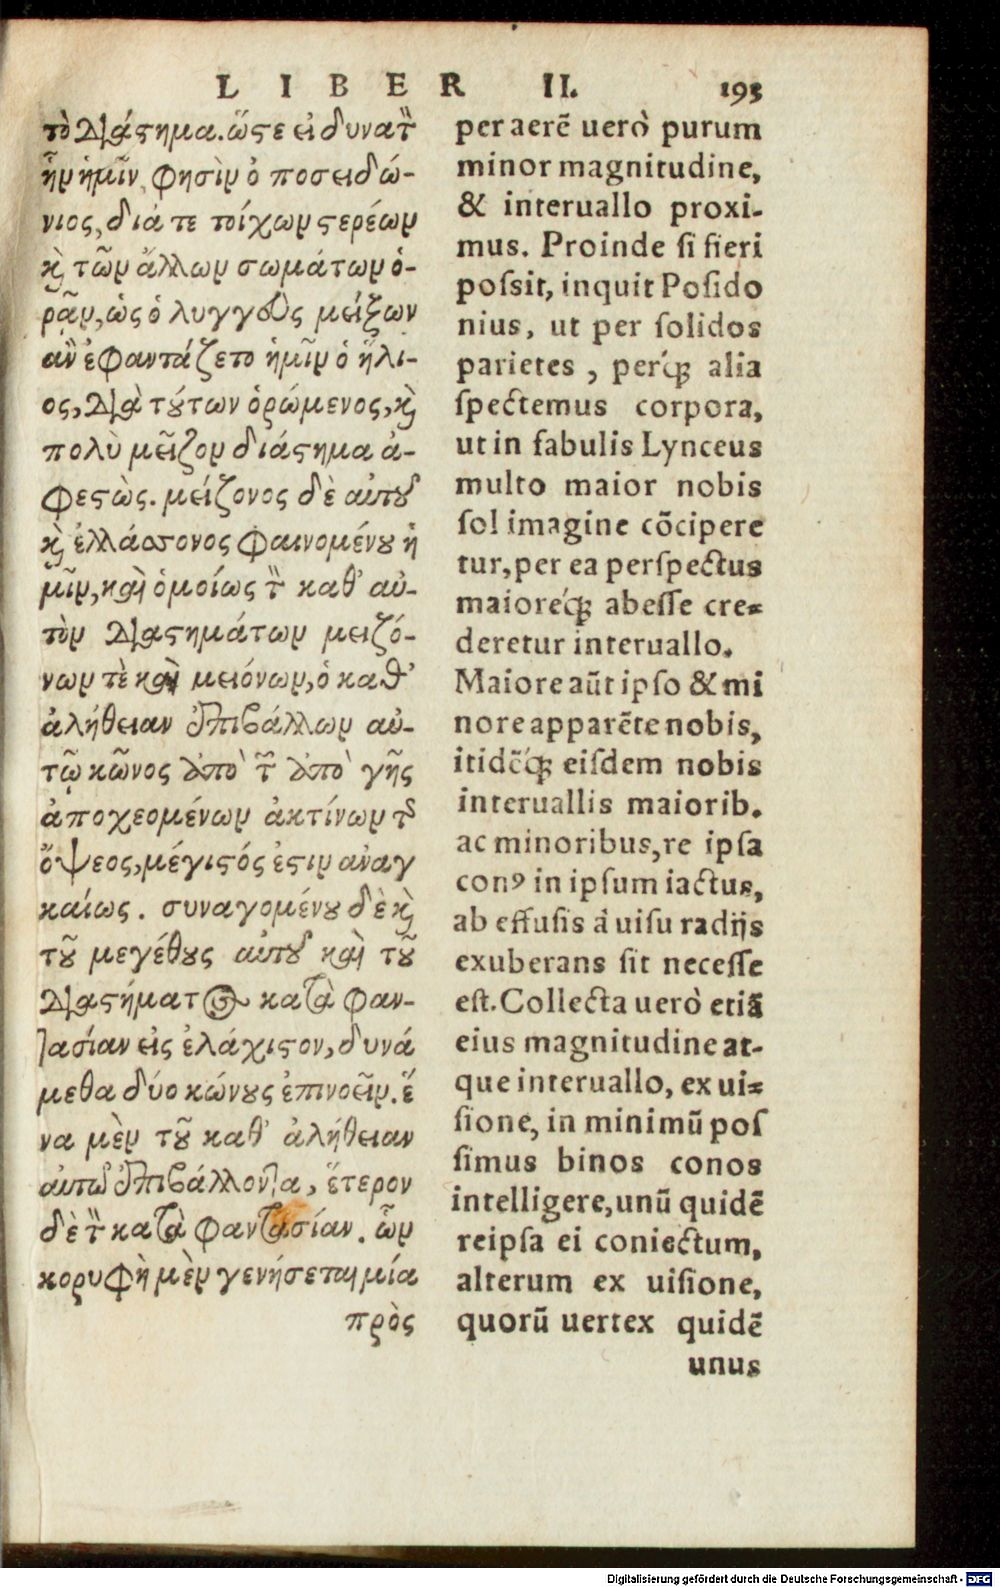 LIBER II. 193
τὸ διάστημα. ὥστε εἰ δυνατὸν
ἦν ἡμῖν, φησὶν ὁ ποσειδώ-
νιος, διά τε τοίχων στερέων
καὶ τῶν ἄλλων σωμάτων ὁ-
ρᾷν, ὡς ὁ λυγγεὺς μείζων
ἂν ἐφαντάζετο ἡμῖν ὁ ἥλι-
ος, διὰ τούτων ὁρώμενος, καὶ
πολὺ μεῖζον διάστημα ἀ-
φεστὼς. μείζονος δὲ αὐτοῦ
καὶ ἐλλάσσονος φαινομένου ἡ
μῖν, καὶ ὁμοίως τῶν καθ' αὐ-
τὸν διαστημάτων μειζό-
νων τὲ καὶ μειόνων, ὁ καθ'
ἀλήθειαν ἐπιβάλλων αὐ-
τῷ κῶνος ἀπὸ τῶν ἀπὸ γῆς
ἀποχεομένων ἀκτίνων τῆς
ὄψεος, μέγιστός ἐστιν αναγ
καίως. συναγομένου δὲ καὶ
τοῦ μεγέθους αὐτοῦ καὶ τοῦ
διαστήματος κατὰ φαν-
τασίαν εἰς ἐλάχιστον, δυνά
μεθα δύο κώνους ἐπινοεῖν. ἕ
να μὲν τοῦ καθ' ἀλήθειαν
αὐτῷ ἐπιβάλλοντα, ἕτερον
δὲ τὸν κατὰ φαντασίαν. ὧν
κορυφὴ μὲν γενήσεται μία
πρὸς
per aerē uerò purum
minor magnitudine,
& interuallo proxi-
mus. Proinde si fieri
possit, inquit Posido
nius, ut per solidos
parietes, perq́; alia
spectemus corpora,
ut in fabulis Lynceus
multo maior nobis
sol imagine cōcipere
tur, per ea perspectus
maioreq́; abesse cre-
deretur interuallo.
Maiore aūt ipso & mi
nore apparēte nobis,
itidēq́; eisdem nobis
interuallis maiorib.
ac minoribus, re ipsa
conꝰ in ipsum iactus,
ab effusis à uisu radijs
exuberans sit necesse
est. Collecta uerò etiā
eius magnitudine at-
que interuallo, ex ui-
sione, in minimū pos
simus binos conos
intelligere, unū quidē
reipsa ei coniectum,
alterum ex uisione,
quorū uertex quidē
unus
Digitalisierung gefördert durch die Deutsche Forschungsgemeinschaft - DFG